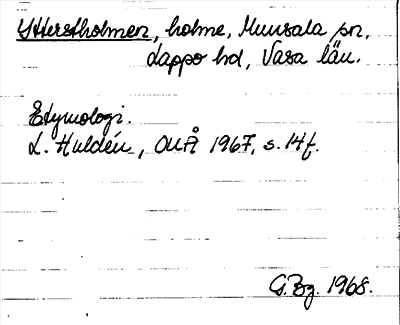 Ytterstholmen, holme, Munsala sn,
Lappo hd, Vasa län.
Etymologi.
L. Huldén, OUÅ 1967, s. 14f.
G.Bg. 1968.